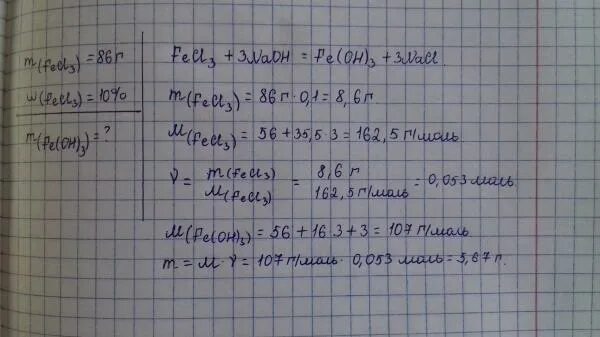 m(FeCl₃) = 86 г
ω(FeCl₃) = 10%
m(Fe(OH)₃) = ?
FeCl₃ + 3NaOH = Fe(OH)₃ + 3NaCl
m(FeCl₃) = 86 г · 0,1 = 8,6 г
M(FeCl₃) = 56 + 35,5 · 3 = 162,5 г/моль
ν = m(FeCl₃) / M(FeCl₃) = 8,6 г / 162,5 г/моль = 0,053 моль
M(Fe(OH)₃) = 56 + 16·3 + 3 = 107 г/моль
m = M · ν = 107 г/моль · 0,053 моль = 5,67 г.